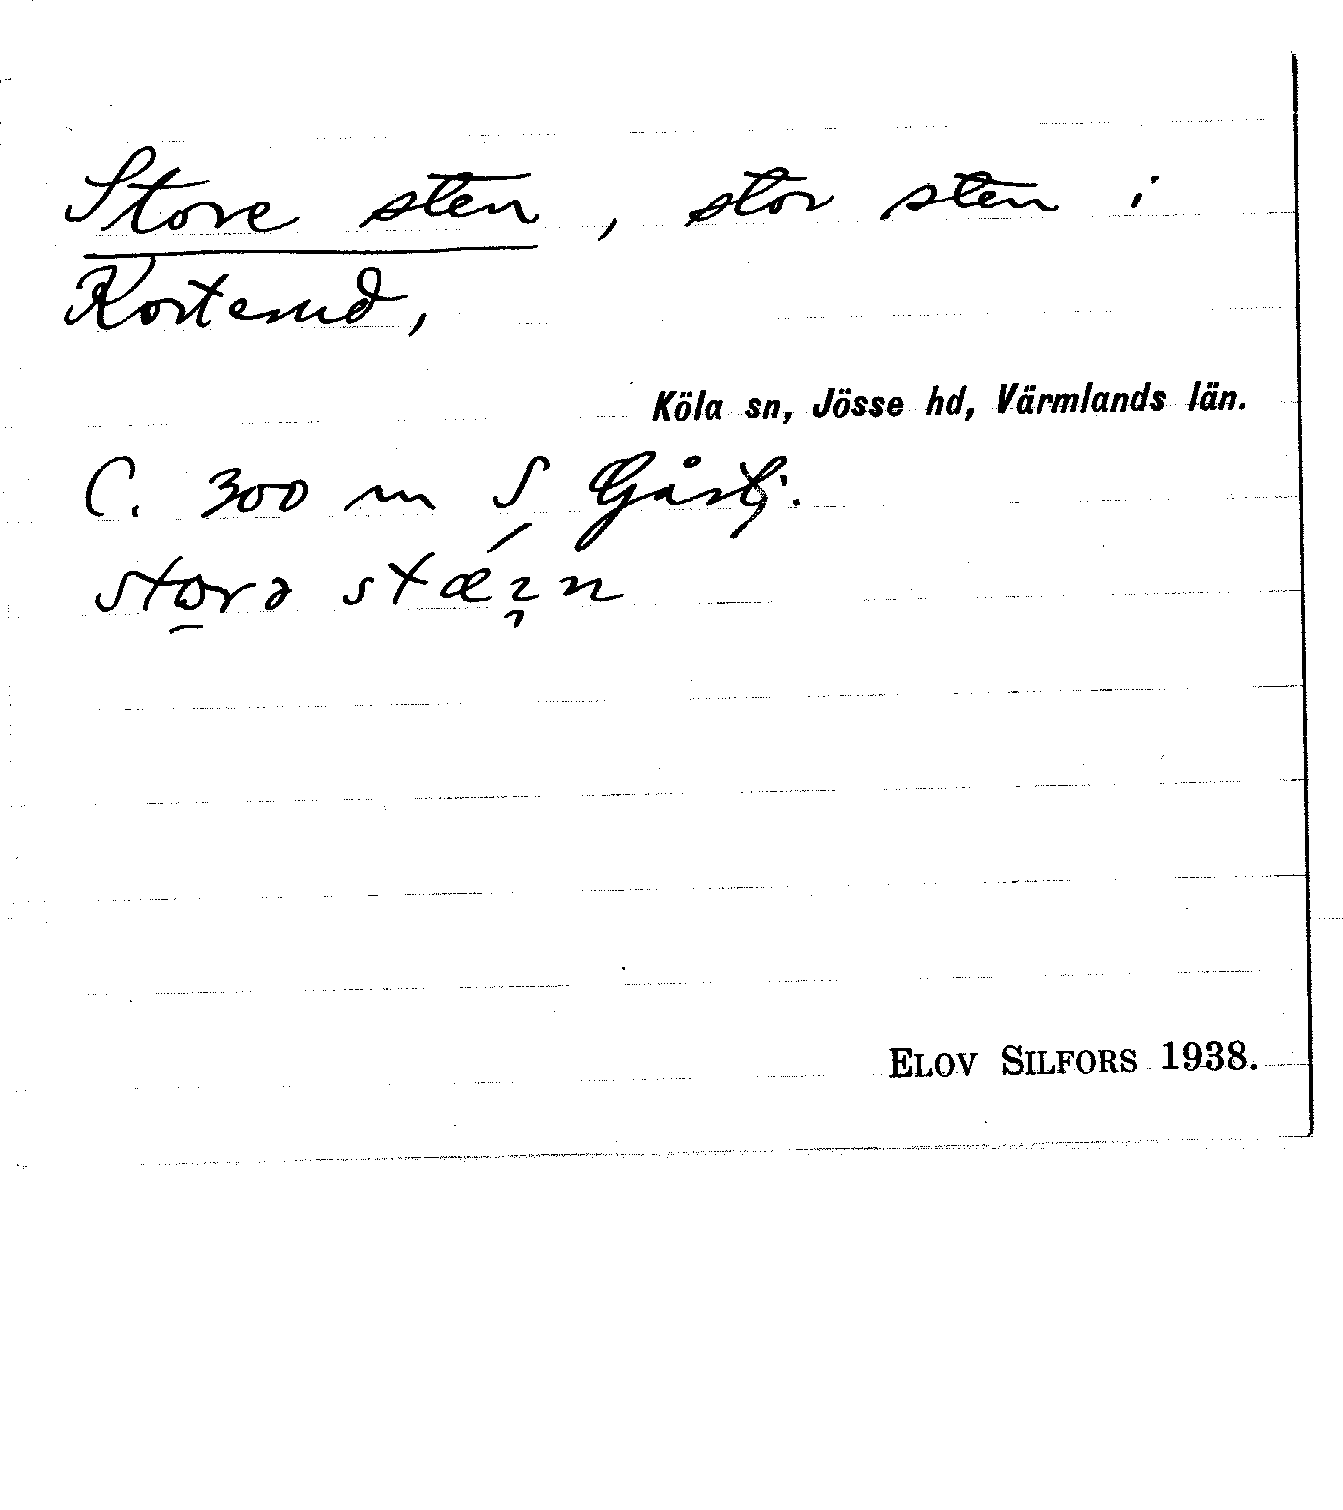 Store sten, stor sten i
Korterud,
Köla sn, Jösse hd, Värmlands län.
C. 300 m S
storə
ELOV SILFORS 1938.